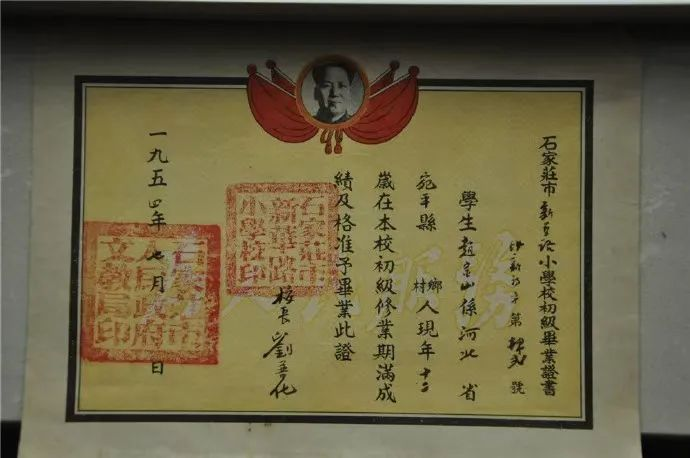 石家莊市新華路小學校初級畢業證書
字第 號
學生趙景山係河北省
宛平縣 鄉村人現年十二
歲在本校初級修業期滿成
績及格准予畢業此證
校長劉
一九五四年七月 日
石家莊市新華路小學校印
石家莊市人民政府文教局印